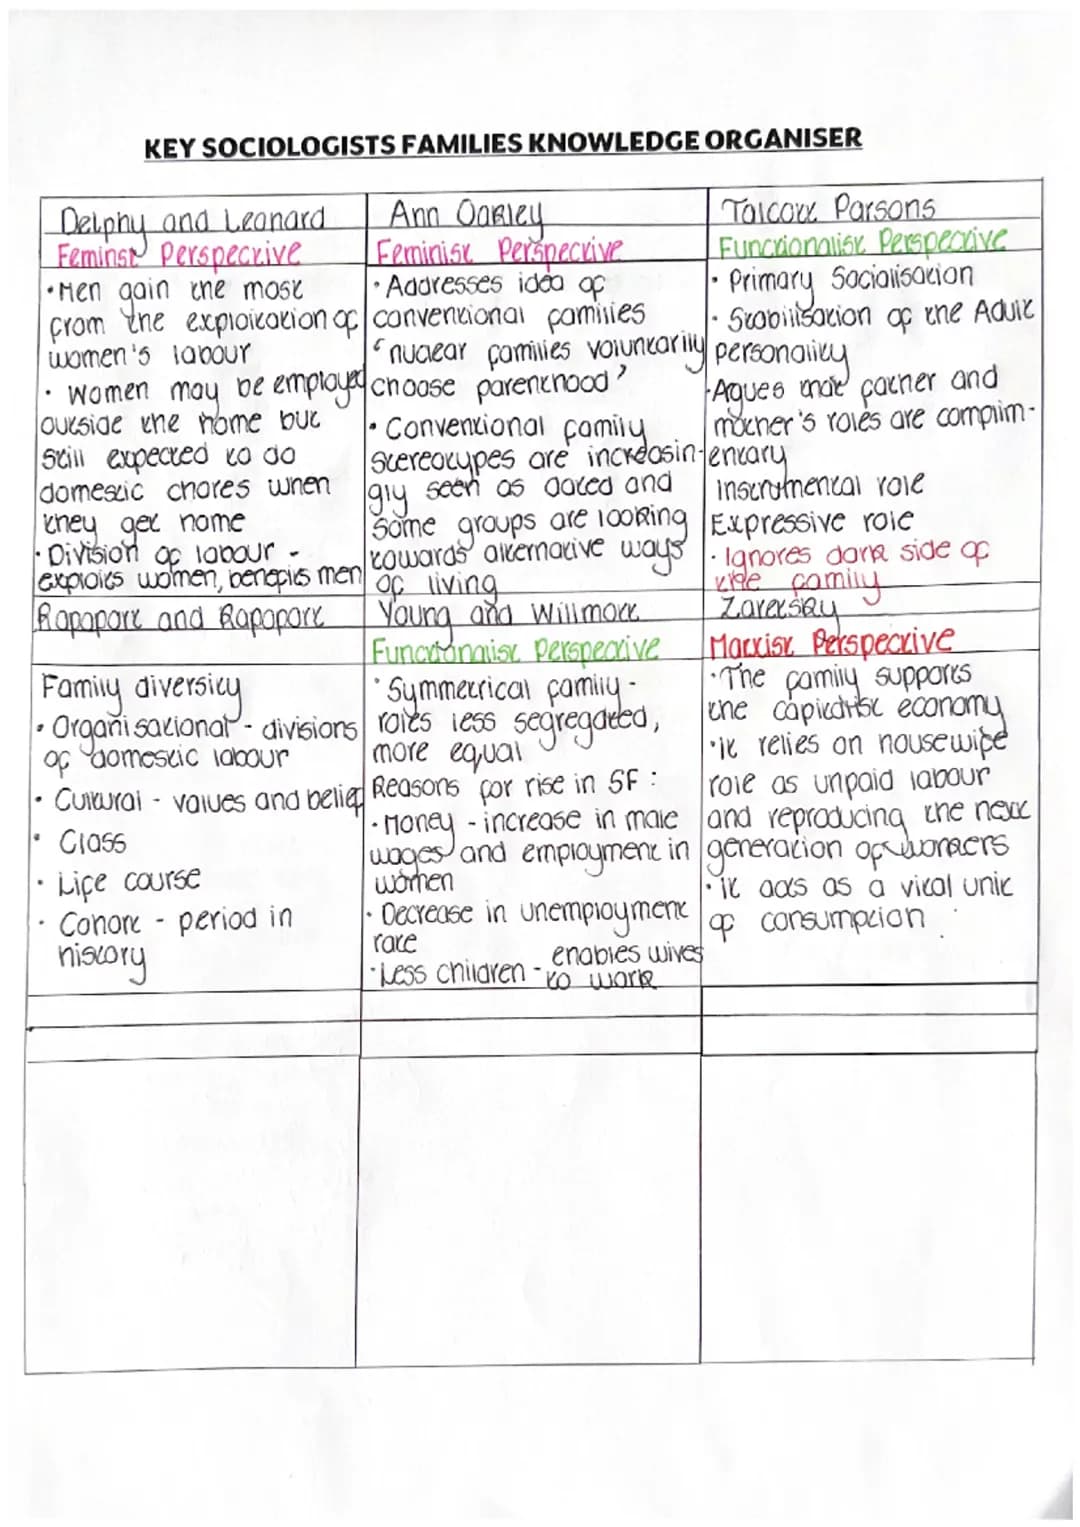 KEY SOCIOLOGISTS FAMILIES KNOWLEDGE ORGANISER
Delphy and Leonard
Feminst Perspective
• Men gain the most
from the exploitation of
women's labour
• women may be employed
outside the home but
still expected to do
domestic chores when
they get home
• Division of labour -
exploits women, benefits men
Ann Oakley
Feminist Perspective
• Addresses idea of
conventional families
'nuclear families voluntarily
choose parenthood'
• Conventional family
stereotypes are increasin-
gly seen as dated and
some groups are looking
towards alternative ways
of living
Talcott Parsons
Functionalist Perspective
• Primary Socialisation
• Stabilisation of the Adult
personality
• Agues that father and
mother's roles are complim-
entary
instrumental role
Expressive role
• Ignores dark side of
the family
Rapaport and Rapaport
Family diversity
• Organisational - divisions
of domestic labour
• Cultural - values and belief
• Class
• Life course
• Cohort - period in
history
Young and Willmott
Functionalist Perspective
• Symmetrical family -
roles less segregated,
more equal
Reasons for rise in SF :
• Money - increase in male
wages and employment in
women
• Decrease in unemployment
rate
• Less children - enables wives
to work
Zaretsky
Marxist Perspective
• The family supports
the capitalist economy
• it relies on housewife
role as unpaid labour
and reproducing the next
generation of workers
• it acts as a vital unit
of consumption